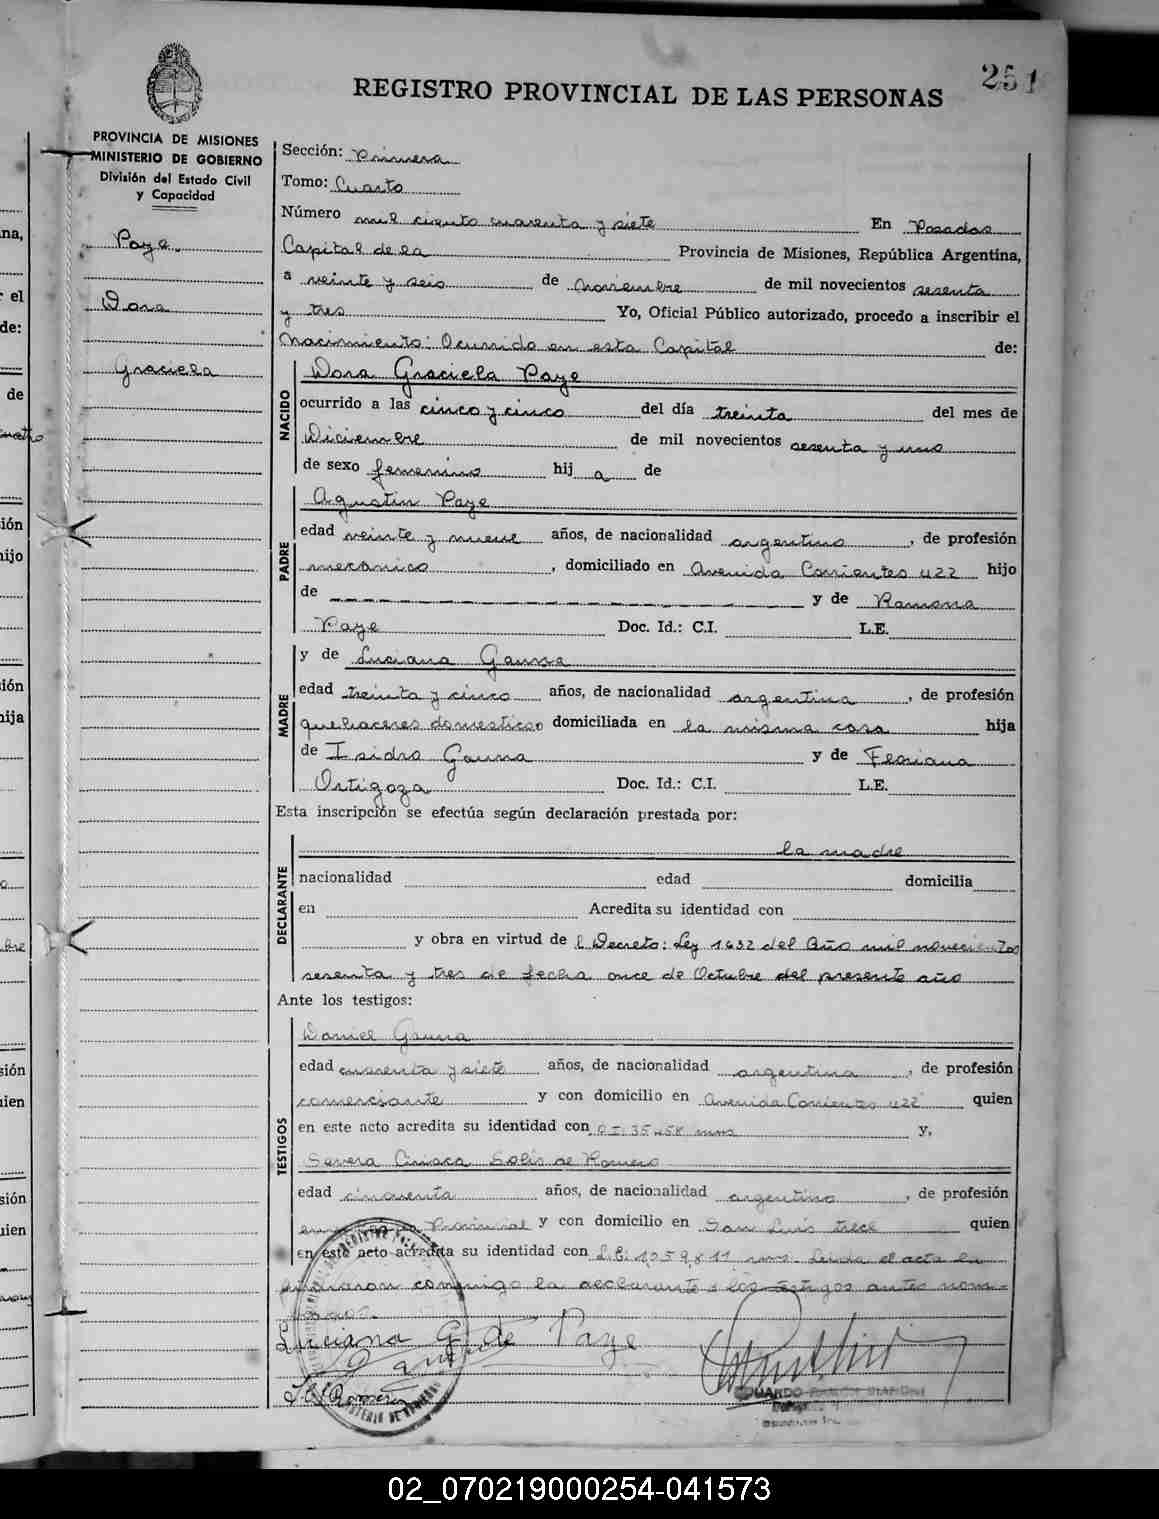 251
REGISTRO PROVINCIAL DE LAS PERSONAS
PROVINCIA DE MISIONES
MINISTERIO DE GOBIERNO
División del Estado Civil
y Capacidad
Paye
Dora
Graciela
Sección: Primera
Tomo: Cuarto
Número mil ciento cuarenta y siete En Posadas
Capital de la Provincia de Misiones, República Argentina,
a veinte y seis de Noviembre de mil novecientos sesenta
y tres Yo, Oficial Público autorizado, procedo a inscribir el
Nacimiento: Ocurrido en esta Capital de:
NACIDO
Dora Graciela Paye
ocurrido a las cinco y cinco del día treinta del mes de
Diciembre de mil novecientos sesenta y uno
de sexo femenino hij a de
PADRE
Agustin Paye
edad veinte y nueve años, de nacionalidad argentino, de profesión
mecánico, domiciliado en Avenida Corrientes 422 hijo
de y de Ramona
Paye Doc. Id.: C.I. L.E.
MADRE
y de Luciana Gauna
edad treinta y cinco años, de nacionalidad argentina, de profesión
quehaceres domesticos domiciliada en la misma casa hija
de Isidro Gauna y de Floriana
Ortigoza Doc. Id.: C.I. L.E.
Esta inscripción se efectúa según declaración prestada por:
DECLARANTE
la madre
nacionalidad edad domicilia
en Acredita su identidad con
y obra en virtud de l Decreto: Ley 1632 del Año mil novecientos
sesenta y tres de fecha once de Octubre del presente año
Ante los testigos:
TESTIGOS
Daniel Gauna
edad cuarenta y siete años, de nacionalidad argentina, de profesión
comerciante y con domicilio en Avenida Corrientes 422 quien
en este acto acredita su identidad con y,
Severa Ciriaca Solis de Romero
edad cincuenta años, de nacionalidad argentino, de profesión
Provincial y con domicilio en San Luis trece quien
en este acto acredita su identidad con Leida el acta la
firmaron conmigo la declarante y los testigos antes nom-
Luciana G. de Paye
Romero
EDUARDO RAMON
02_070219000254-041573